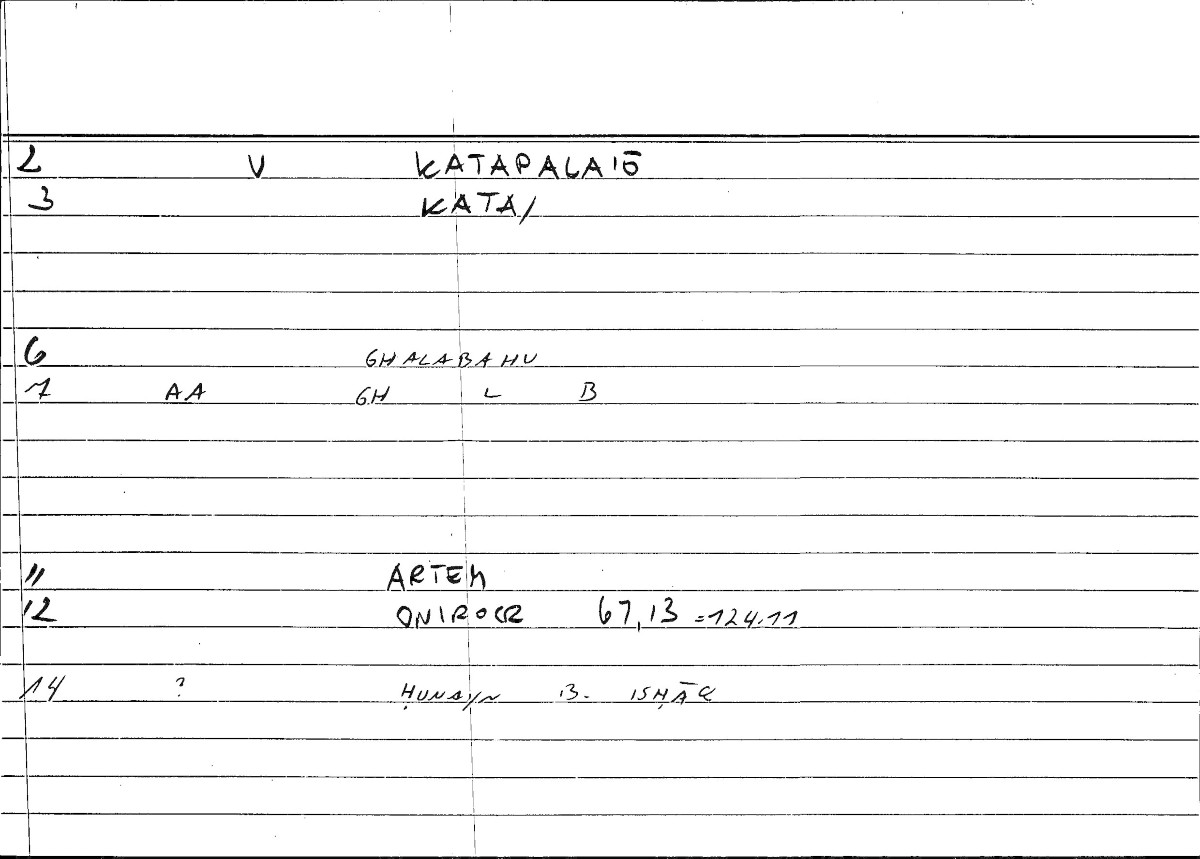 2 V KATAPALAIŌ
3 KATA/
6 GHALABAHU
7 AA GH L B
11 ARTEM
12 ONIROCR 67,13 =124.11
14 ? ḤUNAYN B. ISḤĀQ